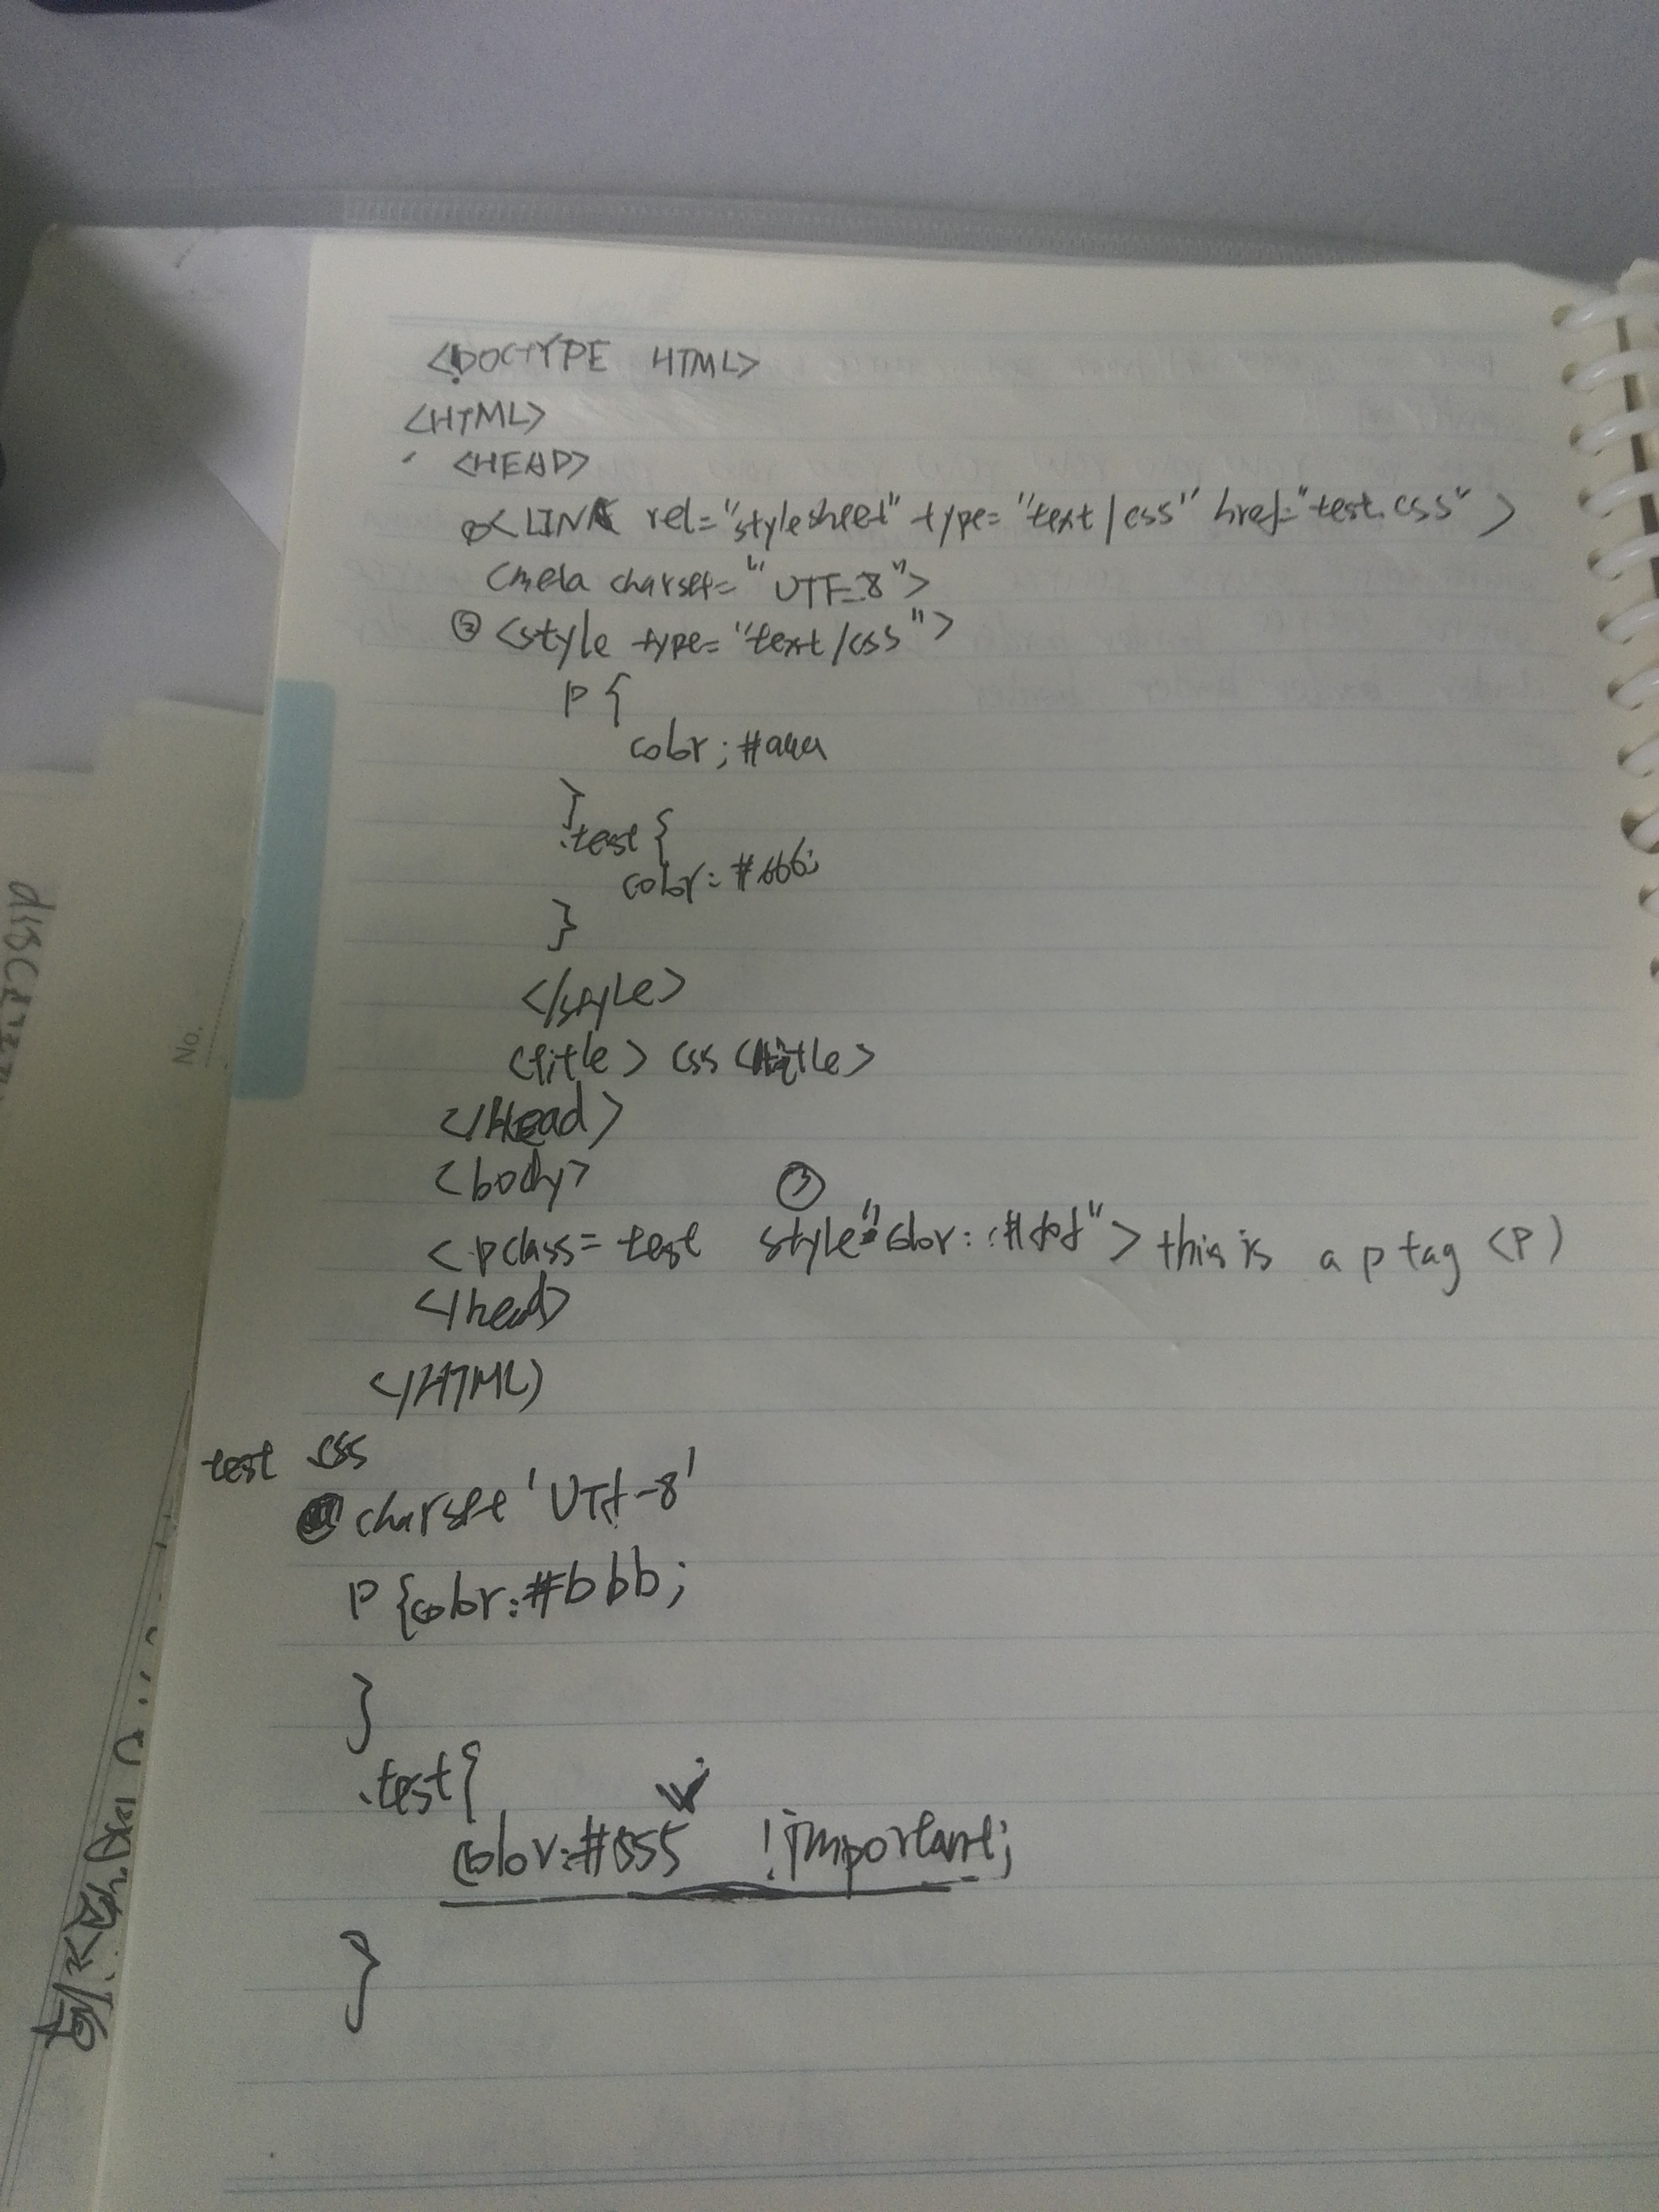 <!DOCTYPE HTML>
<HTML>
<HEAD>
<LINK rel="stylesheet" type="text/css" href="test.css">
<meta charset="UTF-8">
② <style type="text/css">
p{
color;#aaa
}
.test{
color:#666;
}
</style>
<title> css </title>
</Head>
<body>
③
<p class=test style="color: #fdf"> this is a p tag <P>
</head>
</HTML>
test css
@charset 'UTF-8'
P{color:#bbb;
}
.test{
color:#555 !important;
}
No.